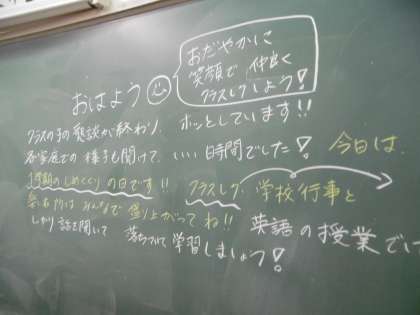 おだやかに
笑顔で 仲良く
クラスレクしよう!
おはよう
クラスの子の懇談が終わり、ホッとしています!!
各家庭での様子も聞けて、いい時間でした! 今日は、
1学期のしめくくりの日です!! クラスレク、学校行事と
みんなで盛り上がってね!! 英語の授業でい
しっかり話を聞いて 落ちついて学習しましょう!